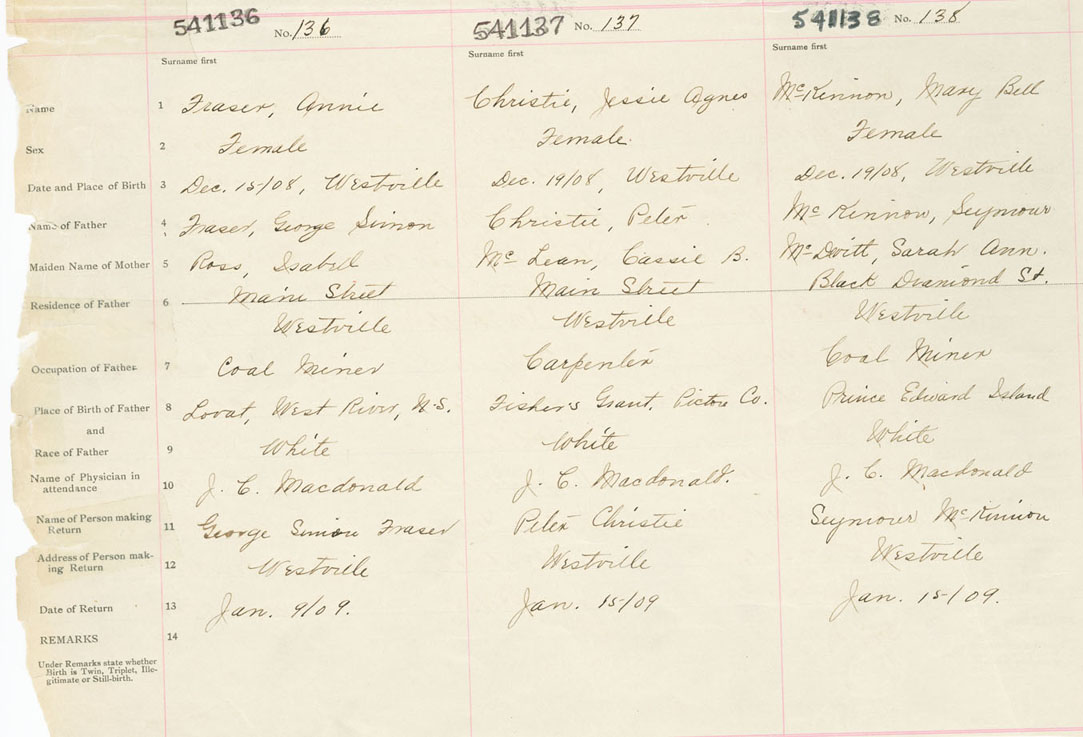 541136 No. 136 541137 No. 137 541138 No. 138
Surname first Surname first Surname first
Name 1 Fraser, Annie Christie, Jessie Agnes McKinnon, Mary Bell
Sex 2 Female Female Female
Date and Place of Birth 3 Dec. 15/08, Westville Dec. 19/08, Westville Dec. 19/08, Westville
Name of Father 4 Fraser, George Simon Christie, Peter McKinnon, Seymour
Maiden Name of Mother 5 Ross, Isabell McLean, Cassie B. McDevitt, Sarah Ann.
Residence of Father 6 Main Street Main Street Black Diamond St.
Westville Westville Westville
Occupation of Father 7 Coal Miner Carpenter Coal Miner
Place of Birth of Father 8 Lovat, West River, N.S. Fisher's Grant, Pictou Co. Prince Edward Island
and
Race of Father 9 White White White
Name of Physician in
attendance 10 J. C. Macdonald J. C. Macdonald. J. C. Macdonald
Name of Person making
Return 11 George Simon Fraser Peter Christie Seymour McKinnon
Address of Person mak-
ing Return 12 Westville Westville Westville
Date of Return 13 Jan. 9/09. Jan. 15/09 Jan. 15/09.
REMARKS 14
Under Remarks state whether
Birth is Twin, Triplet, Ille-
gitimate or Still-birth.